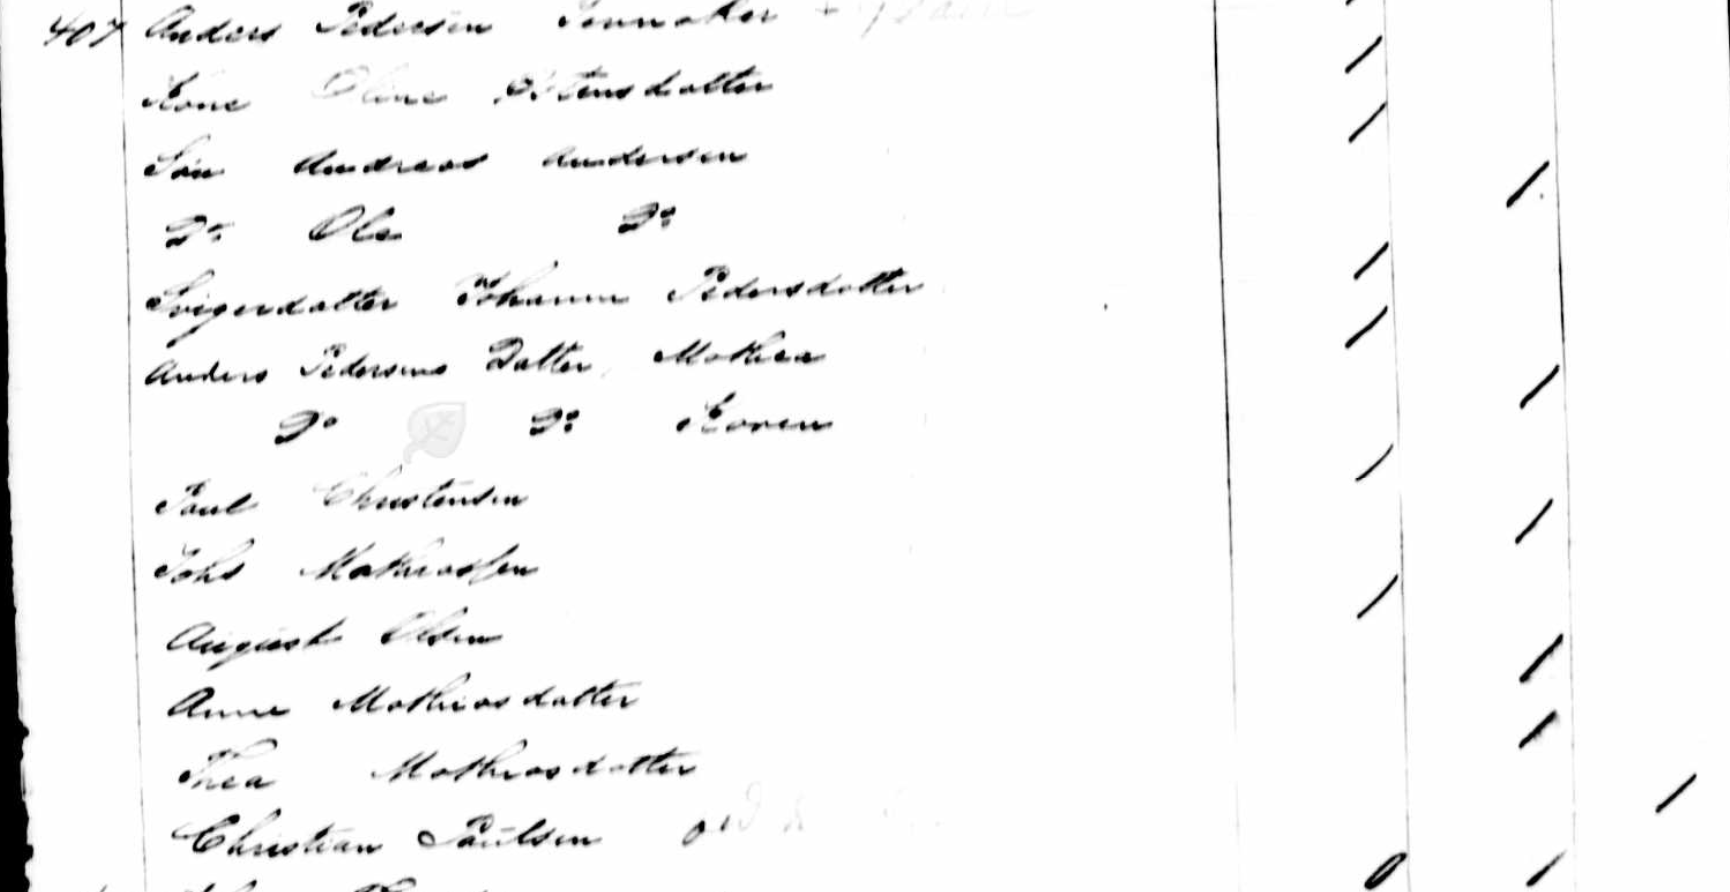 407 Anders Pedersen
Kone Oline Ostensdatter
Sön Andreas Andersen
Do Ole Do
Svigerdatter Johanne Pedersdatter
Anders Pedersens Datter Mathea
Do Do Karen
Paul Christensen
Johs Mathiassen
August Olsen
Anne Mathiasdatter
Thea Mathiasdatter
Christian Paulsen